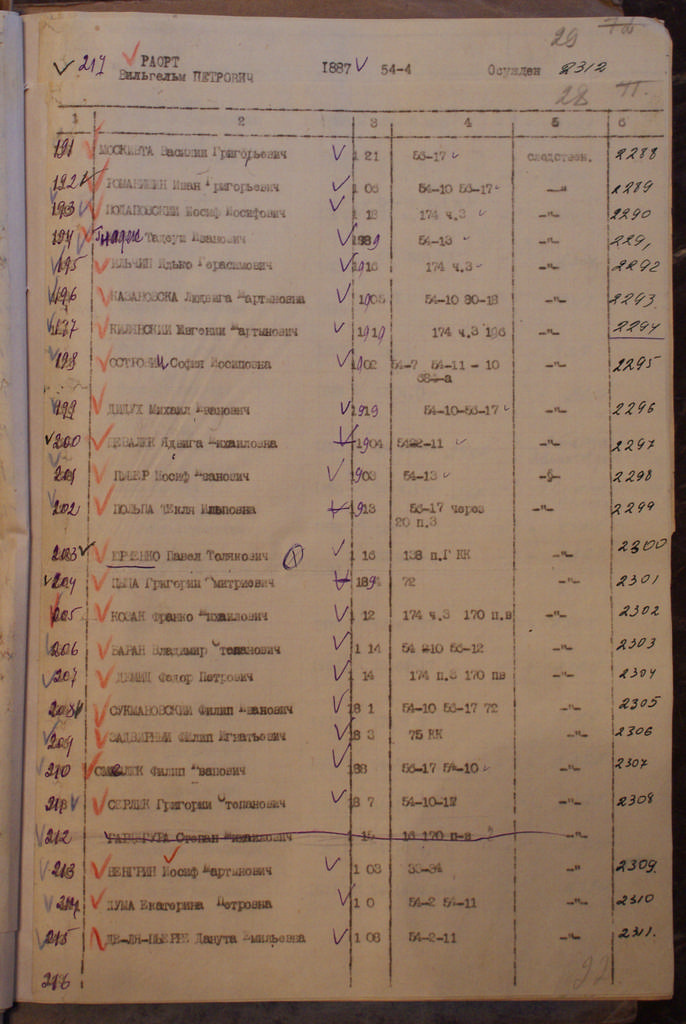 29
217 РАОРТ 1887 54-4 Осужден 2312
Вильгельм ПЕТРОВИЧ
28
1 2 3 4 5 6
191 МОСКВИТА Василий Григорьевич 1 21 56-17 следствен. 2288
192 РОМАНИШИН Иван Григорьевич 1 06 54-10 56-17 -"- 2289
193 Иосиф Иосифович 1 18 174 ч.3 -"- 2290
194 Тадеуш Иванович 1889 54-13 -"- 2291
195 ИЛЬЧИН Герасимович 1916 174 ч.3 -"- 2292
196 КАЗАНОВСКА Людвига Мартыновна 1905 54-10 80-18 -"- 2293
197 КИЛЯНСКИЙ Евгений Мартынович 1919 174 ч.3 196 -"- 2294
198 София Иосиповна 1902 54-7 54-11 - 10 -"- 2295
334-а
199 ДИДУХ Михаил Иванович 1919 54-10-56-17 -"- 2296
200 Ядвига Михайловна 1904 5422-11 -"- 2297
201 Иосиф Иванович 1903 54-13 -"- 2298
202 ПОЛЬПА Текля Ильповна 1913 56-17 через -"- 2299
20 п.3
203 ЮРЧЕНКО Павел Толянович 1 16 138 п.Г КК -"- 2300
204 Григорий Дмитриевич 189 72 -"- 2301
205 КОЗАК Франко Михайлович 1 12 174 ч.3 170 п.в -"- 2302
206 БАРАН Владимир Степанович 1 14 54 -10 56-12 -"- 2303
207 ДЕМИД Федор Петрович 1 14 174 п.3 170 пв -"- 2304
208 СУКМАНОВСКИЙ Филип Иванович 18 1 54-10 56-17 72 -"- 2305
209 ЗАДВИРНЫЙ Филип Игнатьович 18 3 75 КК -"- 2306
210 Филип Иванович 188 56-17 54-10 -"- 2307
211 СЕРДЕК Григорий Степанович 18 7 54-10-12 -"- 2308
212 Степан Михайлович 15 16 170 п-в -"-
213 ВЕНГРИН Иосиф Мартынович 1 03 33-34 -"- 2309
214 ДУМА Екатерина Петровна 1 0 54-2 54-11 -"- 2310
215 Данута Эмильевна 1 06 54-2-11 -"- 2311.
216
22.